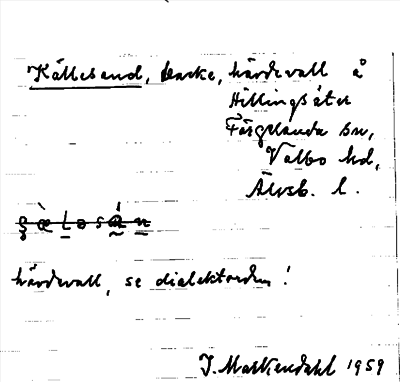 Källesand, backe, hårdevall å
Hillingsäter
Färgelanda sn,
Valbo hd,
Älvsb. l.
hårdevall, se dialektorden!
J. Markendahl 1959